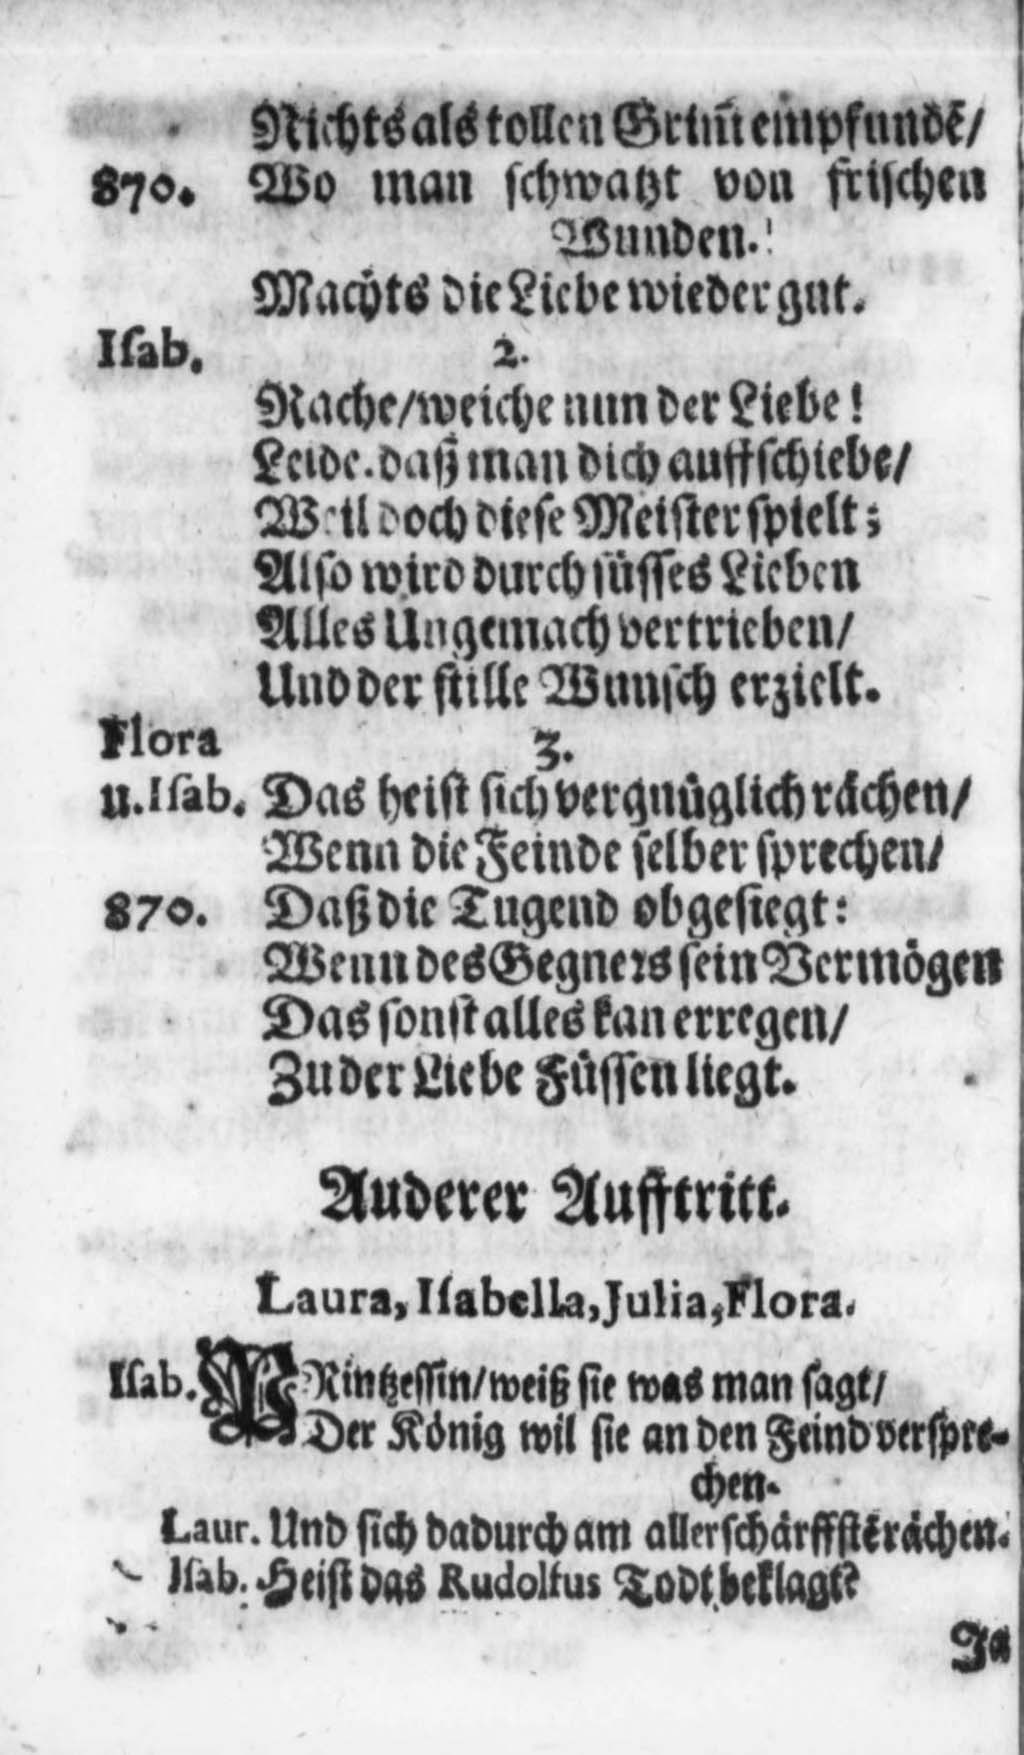 Nichts als tollen Grim̃ empfundẽ/
870. Wo man schwatzt von frischen
Wunden.
Machts die Liebe wieder gut.
Isab. 2.
Rache/weiche nun der Liebe!
Leide. daß man dich auffschiebe/
Weil doch diese Meister spielt;
Also wird durch süsses Lieben
Alles Ungemach vertrieben/
Und der stille Wunsch erzielt.
Flora 3.
u. Isab. Das heist sich vergnüglich rächen/
Wenn die Feinde selber sprechen/
870. Daß die Tugend obgesiegt:
Wenn des Gegners sein Vermögen
Das sonst alles kan erregen/
Zu der Liebe Füssen liegt.
Anderer Aufftritt.
Laura, Isabella, Julia, Flora.
Isab. PRintzessin/weiß sie was man sagt/
Der König wil sie an den Feind verspre-
chen.
Laur. Und sich dadurch am allerschärffstẽ rächen.
Isab. Heist das Rudolfus Todt beklagt?
Ja